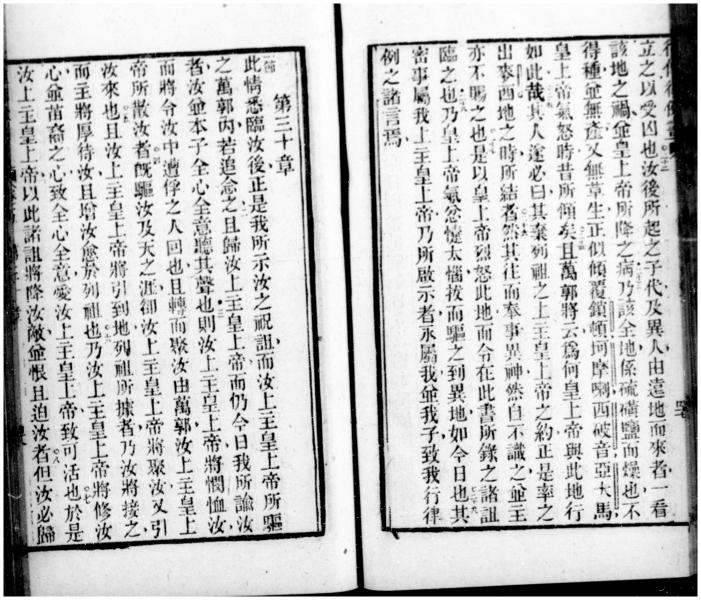 立之以受凶也汝後所起之子代及異人由遠地而來者一看
該地之禍並皇上帝所降之病乃該全地係硫磺鹽而燥也不
得種並無產又無草生正似傾覆鎖頓坷摩喇西破音亞大馬
皇上帝氣怒時昔所傾矣且萬郭將云爲何皇上帝與此地行
如此哉其人遂必曰其棄列祖之上主皇上帝之約正是率之
出麥西地之時所結者然其往而奉事異神然自不識之並主
亦不賜之也是以皇上帝烈怒此地而令在此書所錄之諸詛
臨之也乃皇上帝氣忿懥太惱拔而驅之到異地如今日也其
密事屬我上主皇上帝乃所啟示者永屬我並我子致我行律
例之諸言焉
第三十章
此情悉臨汝後正是我所示汝之祝詛而汝上主皇上帝所驅
之萬郭內若追念之且歸汝上主皇上帝而仍今日我所諭汝
者汝並本子全心全意聽其聲也則汝上主皇上帝將憫恤汝
而將令汝中遭俘之人回也且轉而聚汝由萬郭汝上主皇上
帝所散汝者既驅汝及天之涯卻汝上主皇上帝將聚汝又引
汝來也且汝上主皇上帝將引到地列祖所據者乃汝將接之
而主將厚待汝且增汝愈於列祖也乃汝上主皇上帝將修汝
心並苗裔之心致全心全意愛汝上主皇上帝致可活也於是
汝上主皇上帝以此諸詛將降汝敵並恨且迫汝者但汝必歸